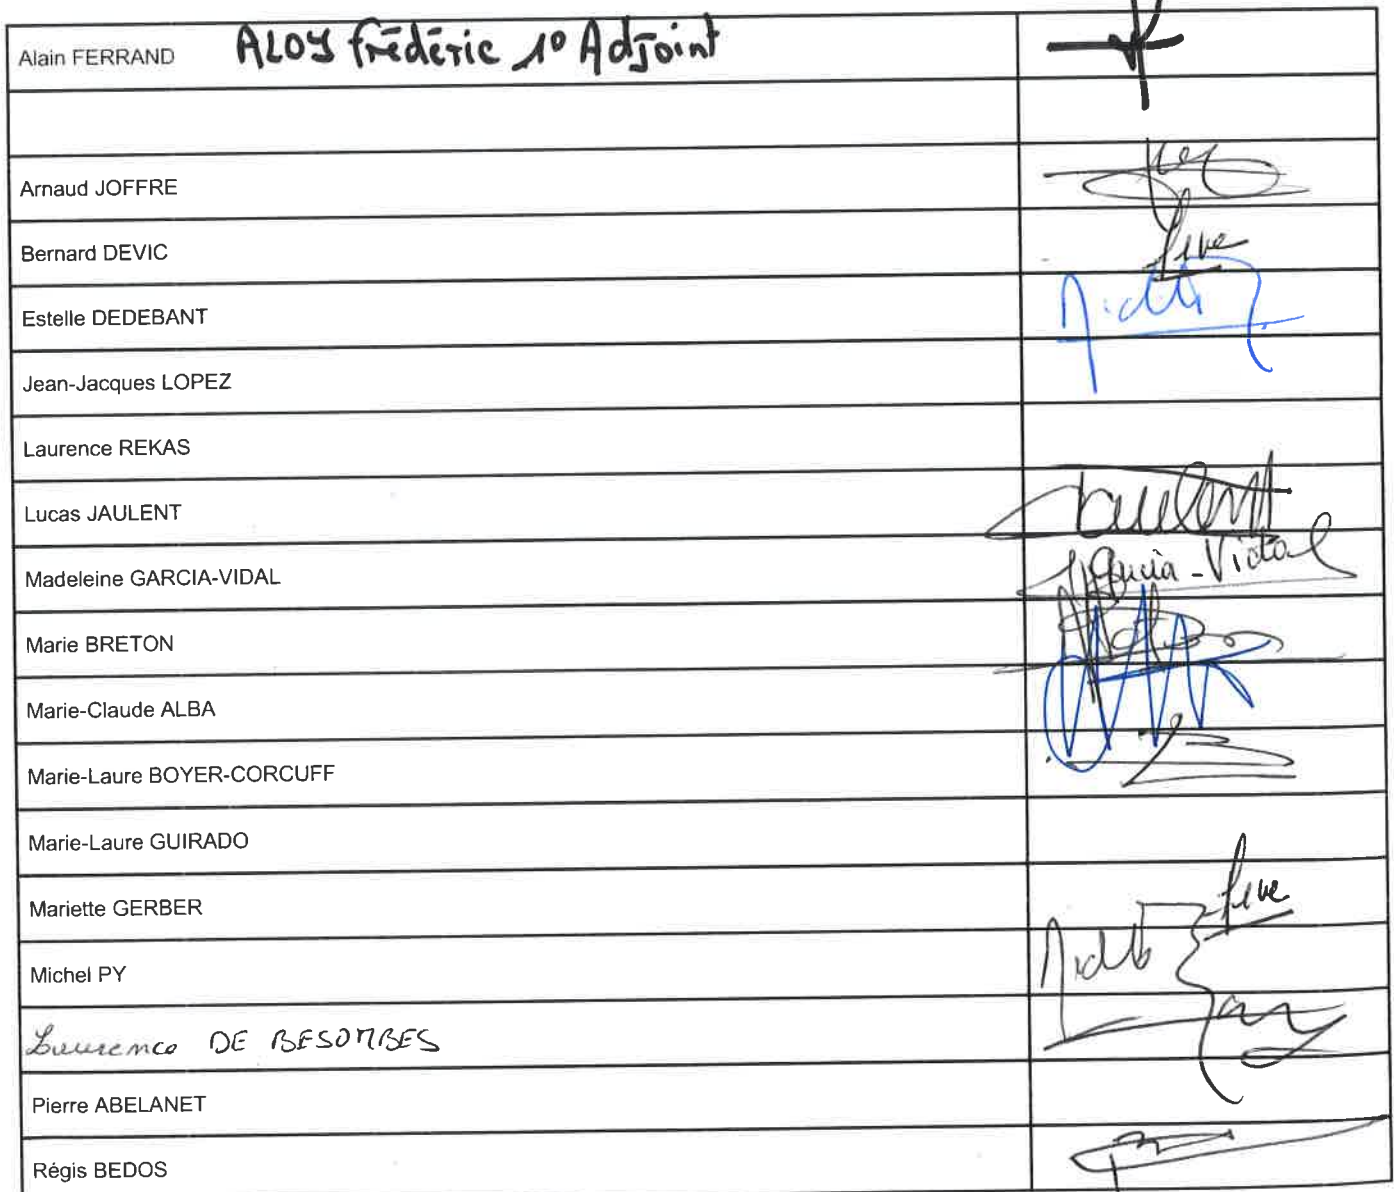 Alain FERRAND ALOY Frédéric 1° Adjoint
Arnaud JOFFRE
Bernard DEVIC
Estelle DEDEBANT
Jean-Jacques LOPEZ
Laurence REKAS
Lucas JAULENT Jaulent
Madeleine GARCIA-VIDAL Garcia-Vidal
Marie BRETON
Marie-Claude ALBA
Marie-Laure BOYER-CORCUFF
Marie-Laure GUIRADO
Mariette GERBER
Michel PY
Laurence DE BESOMBES
Pierre ABELANET
Régis BEDOS